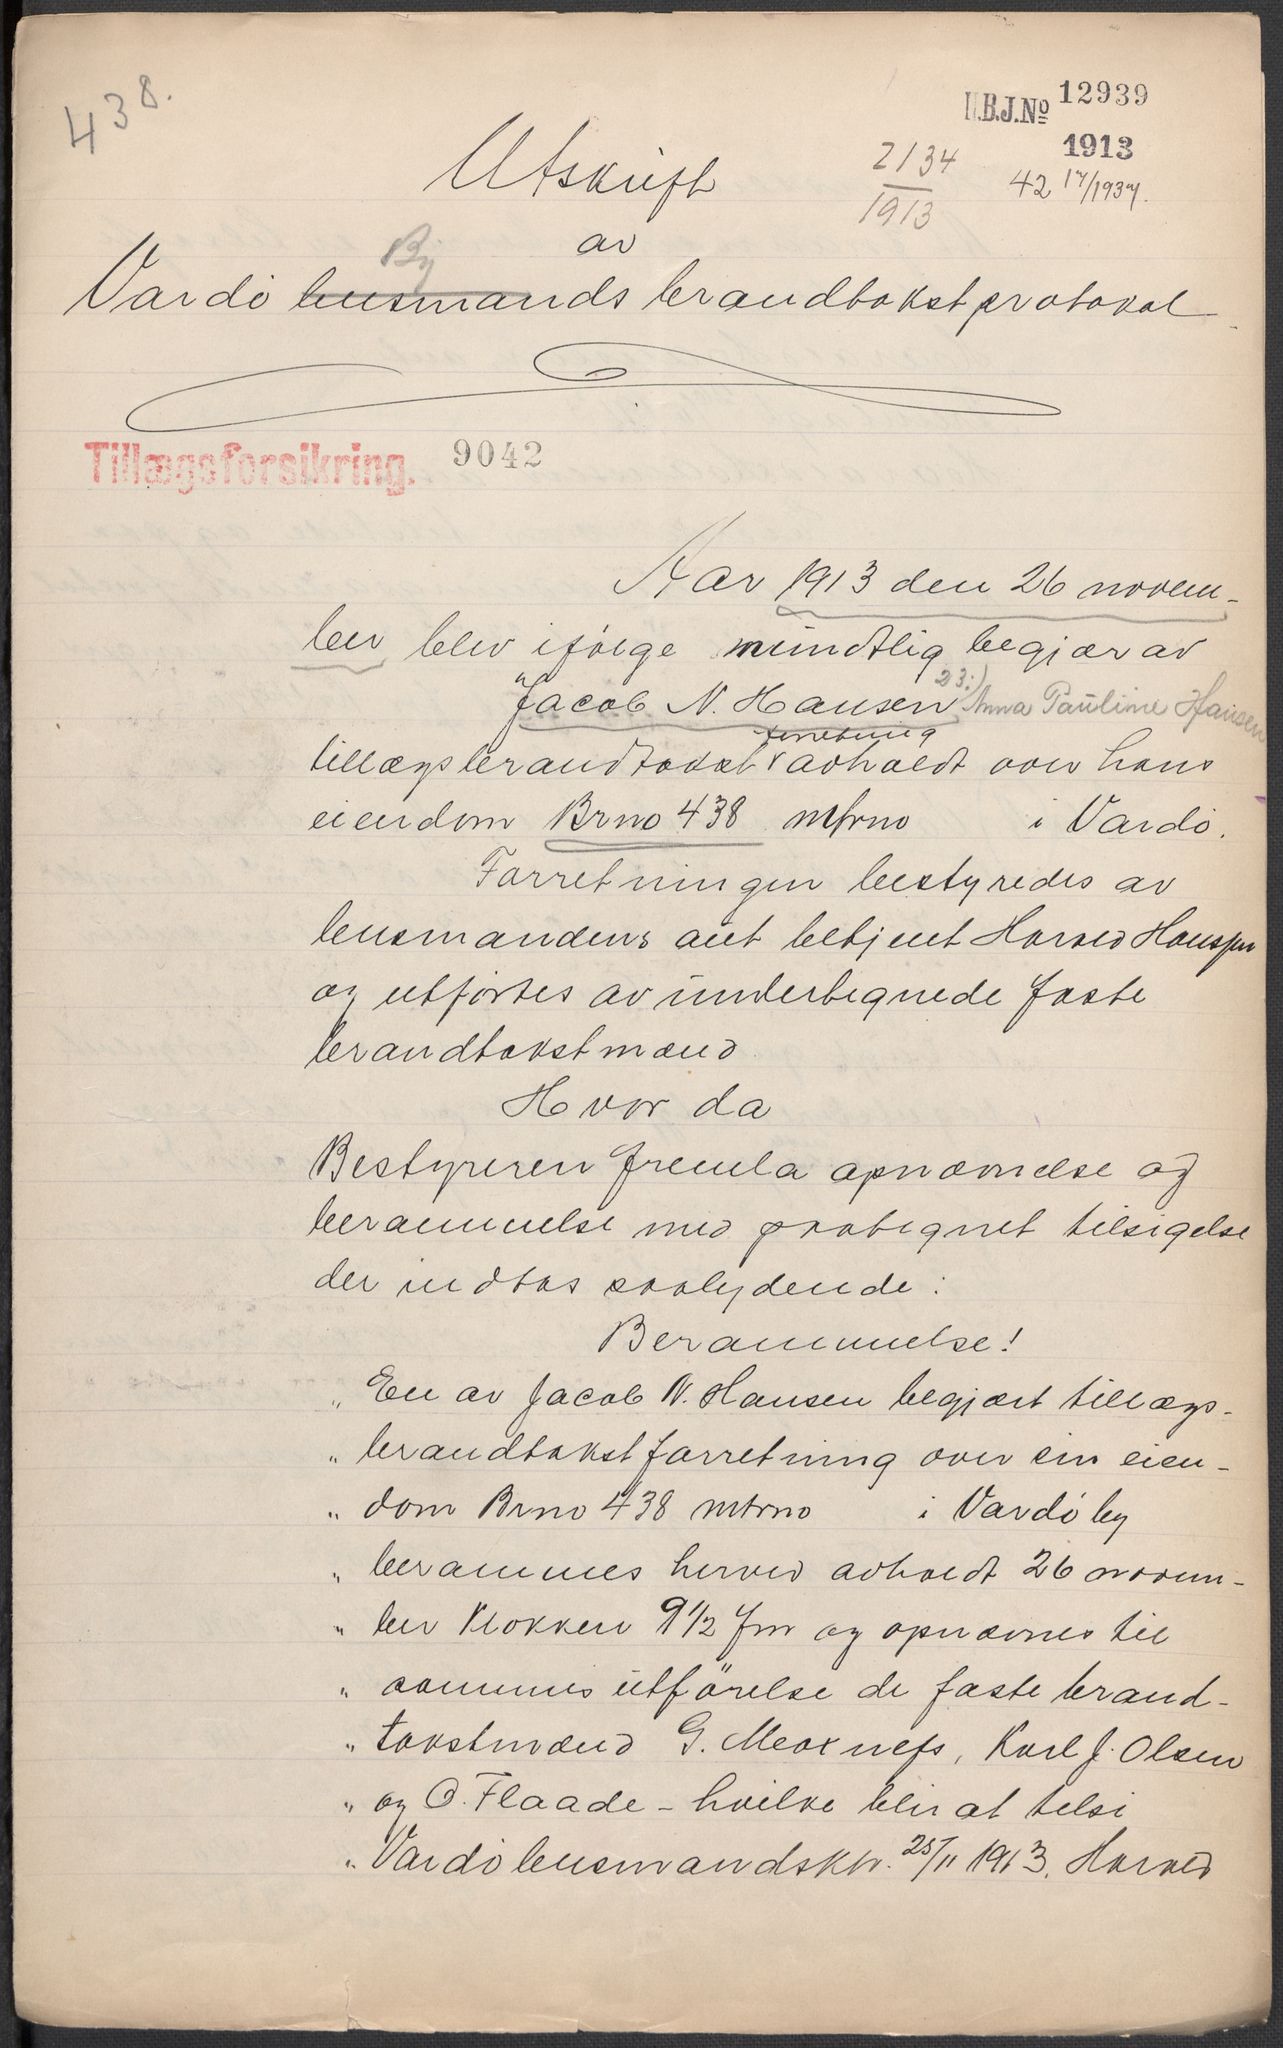 438.
H.B.J.No 12939
1913
2134
1913
42 17/1937.
Utskrift
av
By
Vardö lensmands brandtakstprotokol
Tillægsforsikring. 9042
Aar 1913 den 26 novem-
ber blev ifölge mündtlig begjær av
Jacob N. Hansen Anna Pauline Hansen
forretning
tillægsbrandtakst avholdt over hans
eiendom Brno 438 mtrno i Vardö.
Forretningen bestyredes av
lensmandens aut betjent Harald Hansen
og utförtes av ündertegnede faste
brandtakstmænd
Hvor da
Bestyreren fremla opnævnelse og
berammelse med paategnet tilsigelse
der indtas saalydende:
Berammelse!
"En av Jacob N. Hansen begjært tillægs-
"brandtakstforretning over sin eien-
"dom Brno 438 mtrno i Vardö by
"berammes herved avholdt 26 novem-
"ber klokken 9 1/2 fm og opnævnes til
"sammes ütförelse de faste brand-
"takstmænd G. Karl J. Olsen
"og O. Flaade - hvilke blir at tilsi
"Vardö lensmandsktr. 25/11 1913. Harald